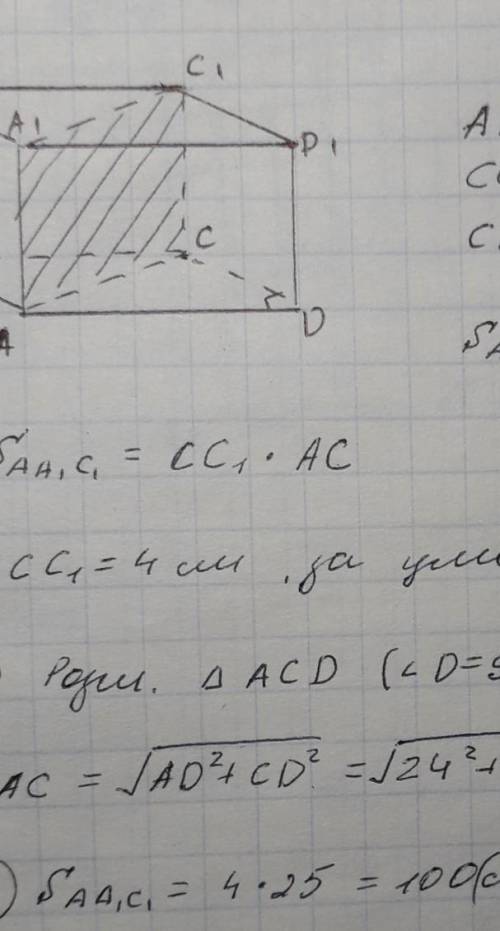 C₁
A₁
D₁
A
C
C
C
D
A
S_A
S_AA₁C₁ = CC₁ · AC
CC₁ = 4 см, за умо
) Розгл. Δ ACD (∠D=9
AC = √AD²+CD² = √24²+
) S_AA₁C₁ = 4·25 = 100(с